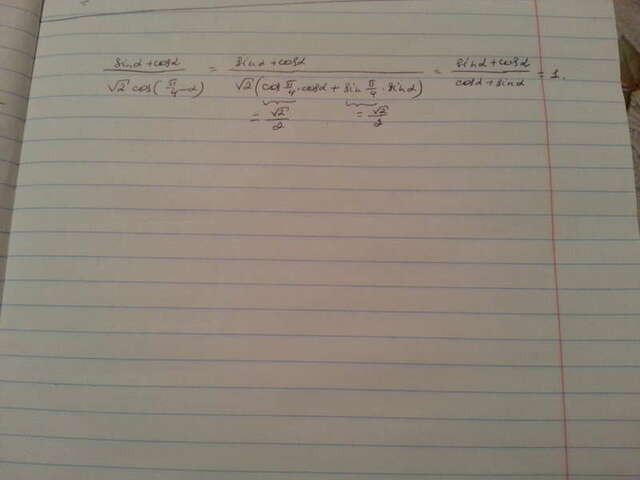 sinα + cosα / √2 cos(π/4 - α) = sinα + cosα / √2 (cos π/4 · cosα + sin π/4 · sinα) = sinα + cosα / cosα + sinα = 1.
= √2/2 = √2/2